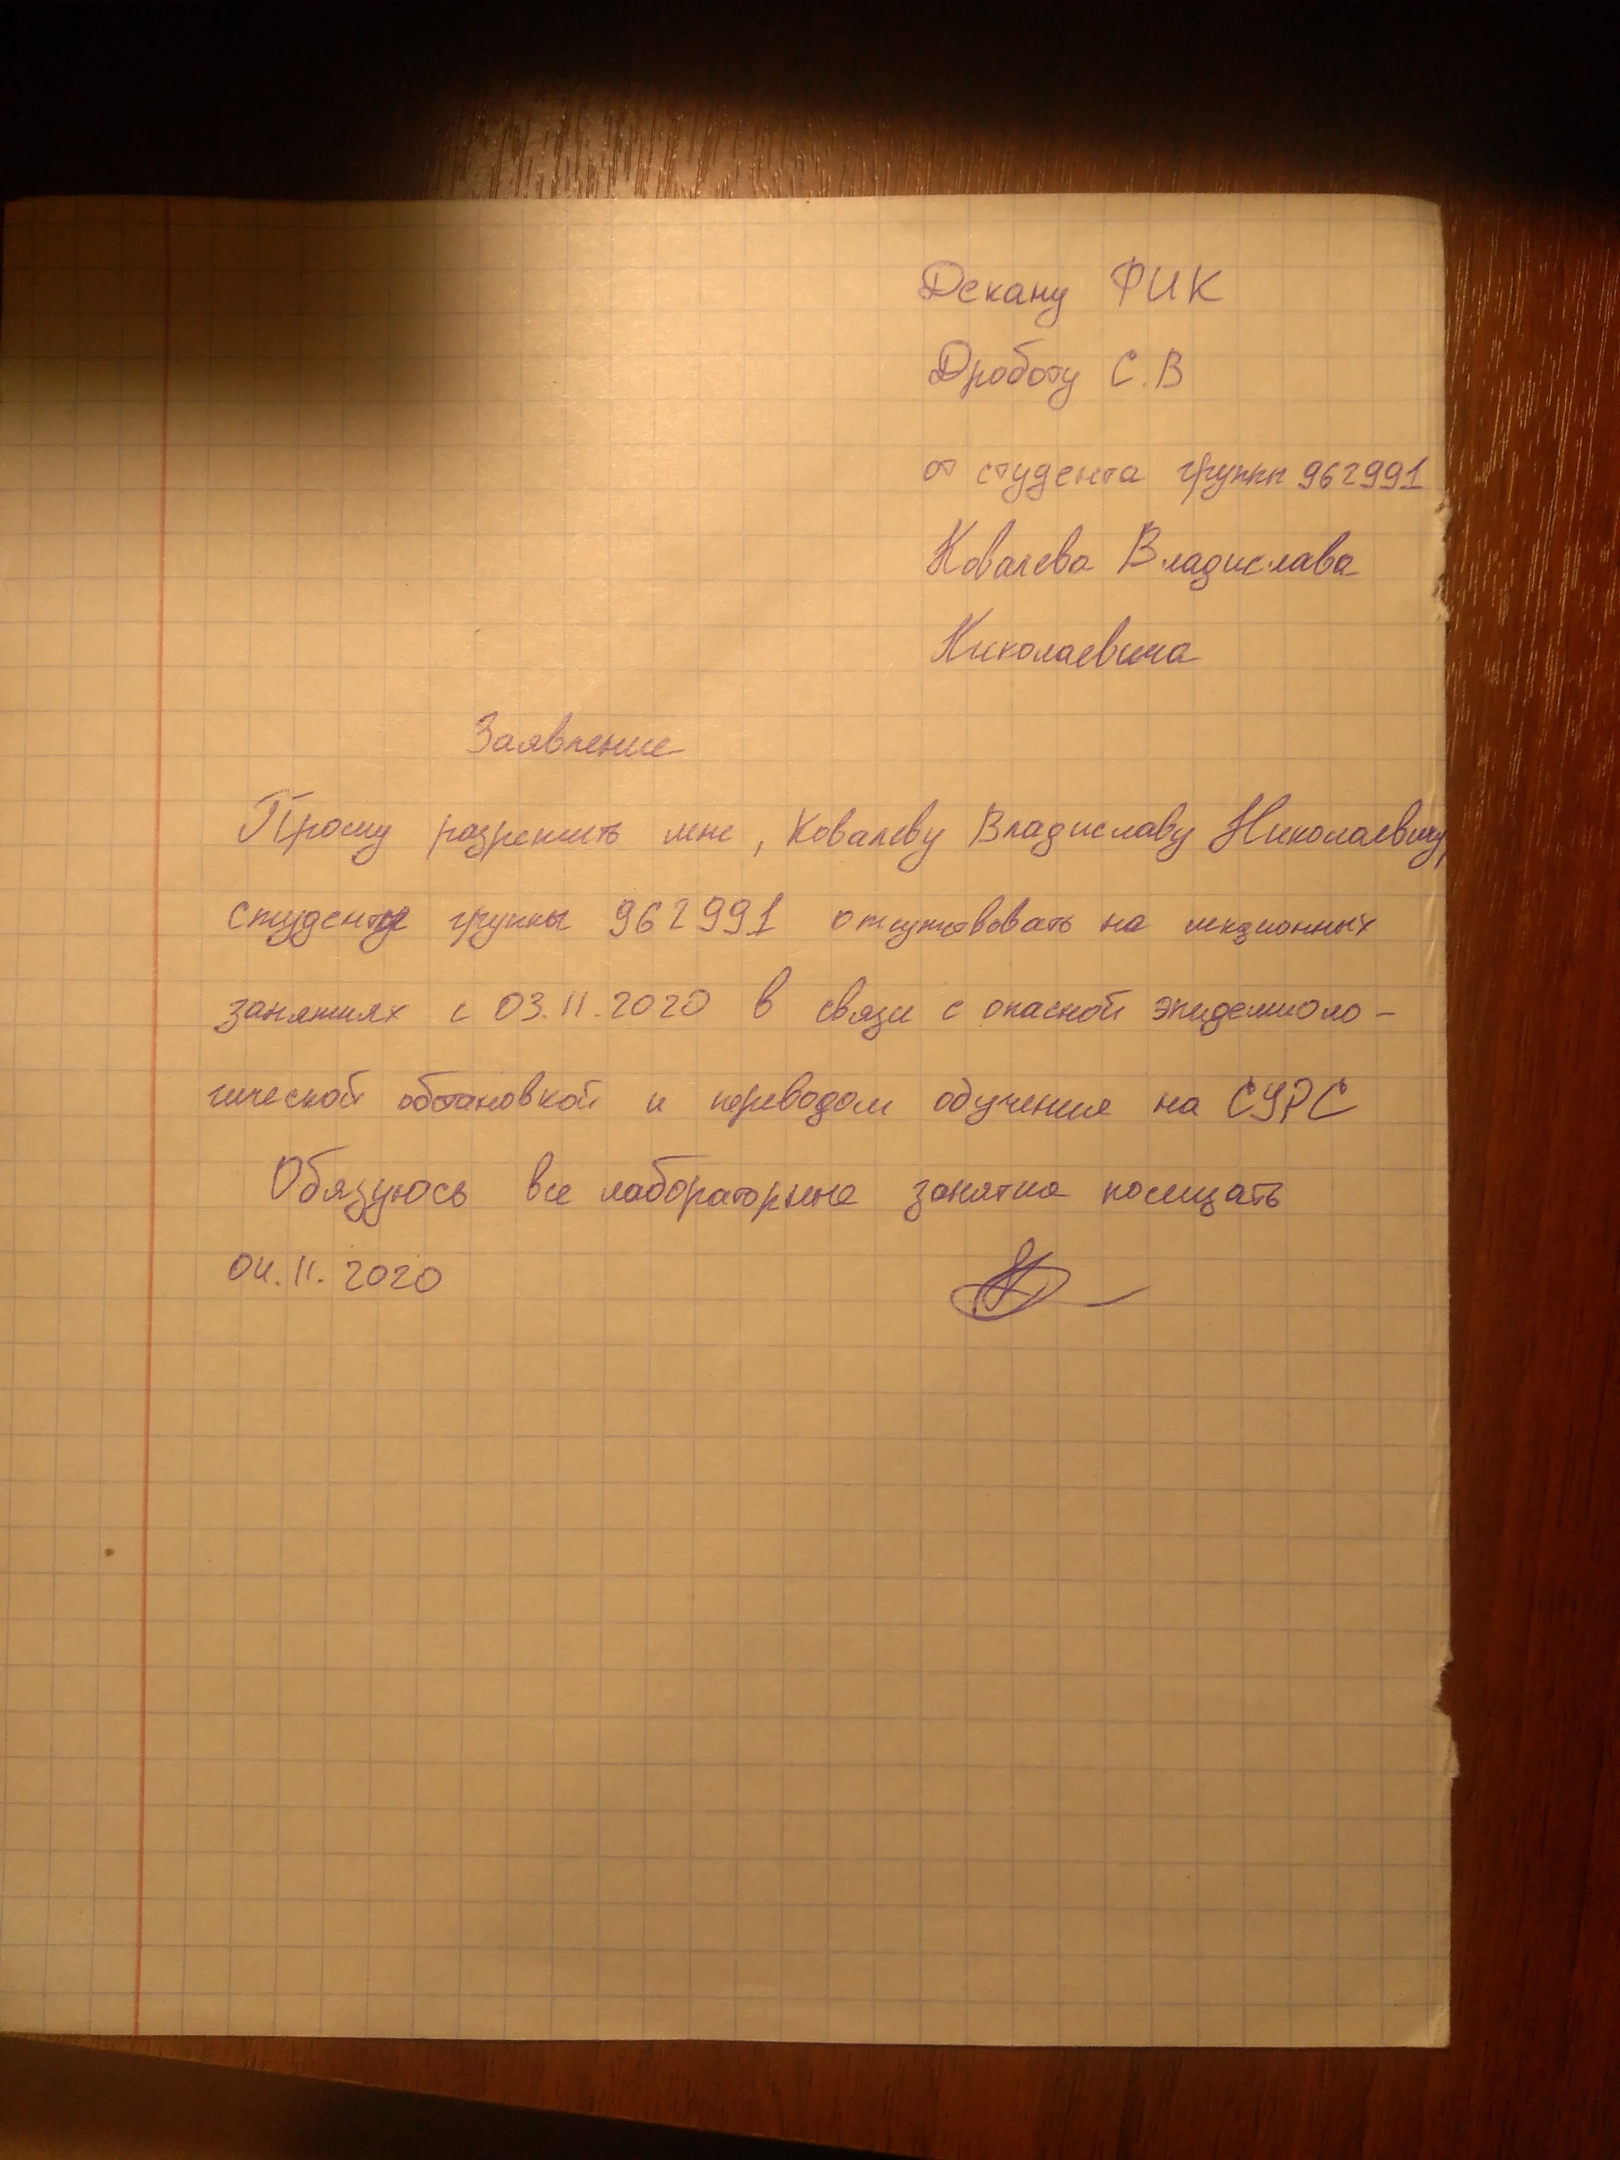 Декану ФИК
Дроботу С.В
от студента группы 962991
Ковалева Владислава
Николаевича
Заявление
Прошу разрешить мне, Ковалеву Владиславу Николаевичу,
студенту группы 962991 отсутствовать на лекционных
занятиях с 03.11.2020 в связи с опасной эпидемиоло-
гической обстановкой и переводом обучения на СУРС
Обязуюсь все лабораторные занятия посещать
04.11.2020